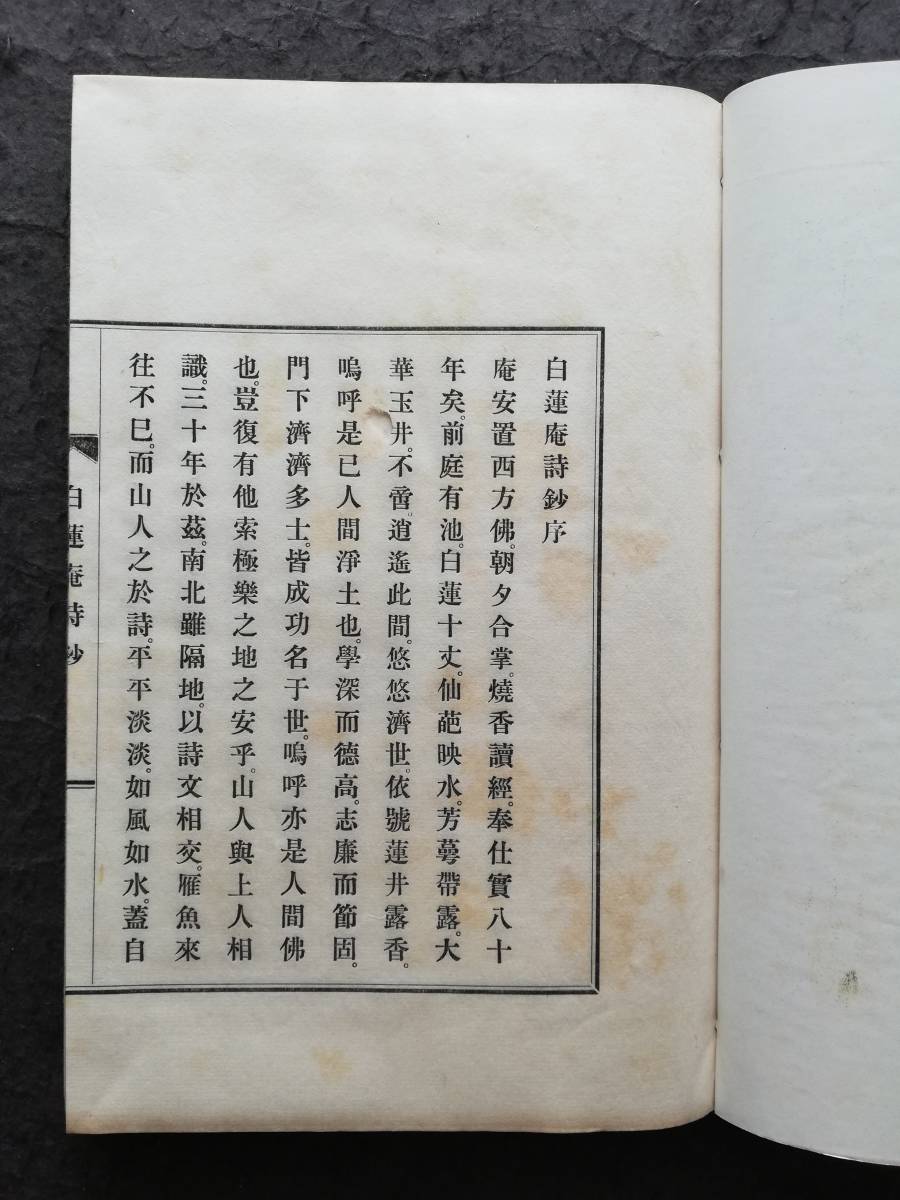 白蓮庵詩鈔序
庵安置西方佛。朝夕合掌。燒香讀經。奉仕實八十
年矣。前庭有池。白蓮十丈。仙葩映水。芳蕚帶露。大
華玉井。不啻逍遙此間。悠悠濟世。依號蓮井露香。
嗚呼是已人間淨土也。學深而德高。志廉而節固。
門下濟濟多士。皆成功名于世。嗚呼亦是人間佛
也。豈復有他索極樂之地之安乎。山人與上人相
識。三十年於茲。南北雖隔地。以詩文相交。雁魚來
往不已。而山人之於詩。平平淡淡。如風如水。蓋自
白蓮庵詩鈔